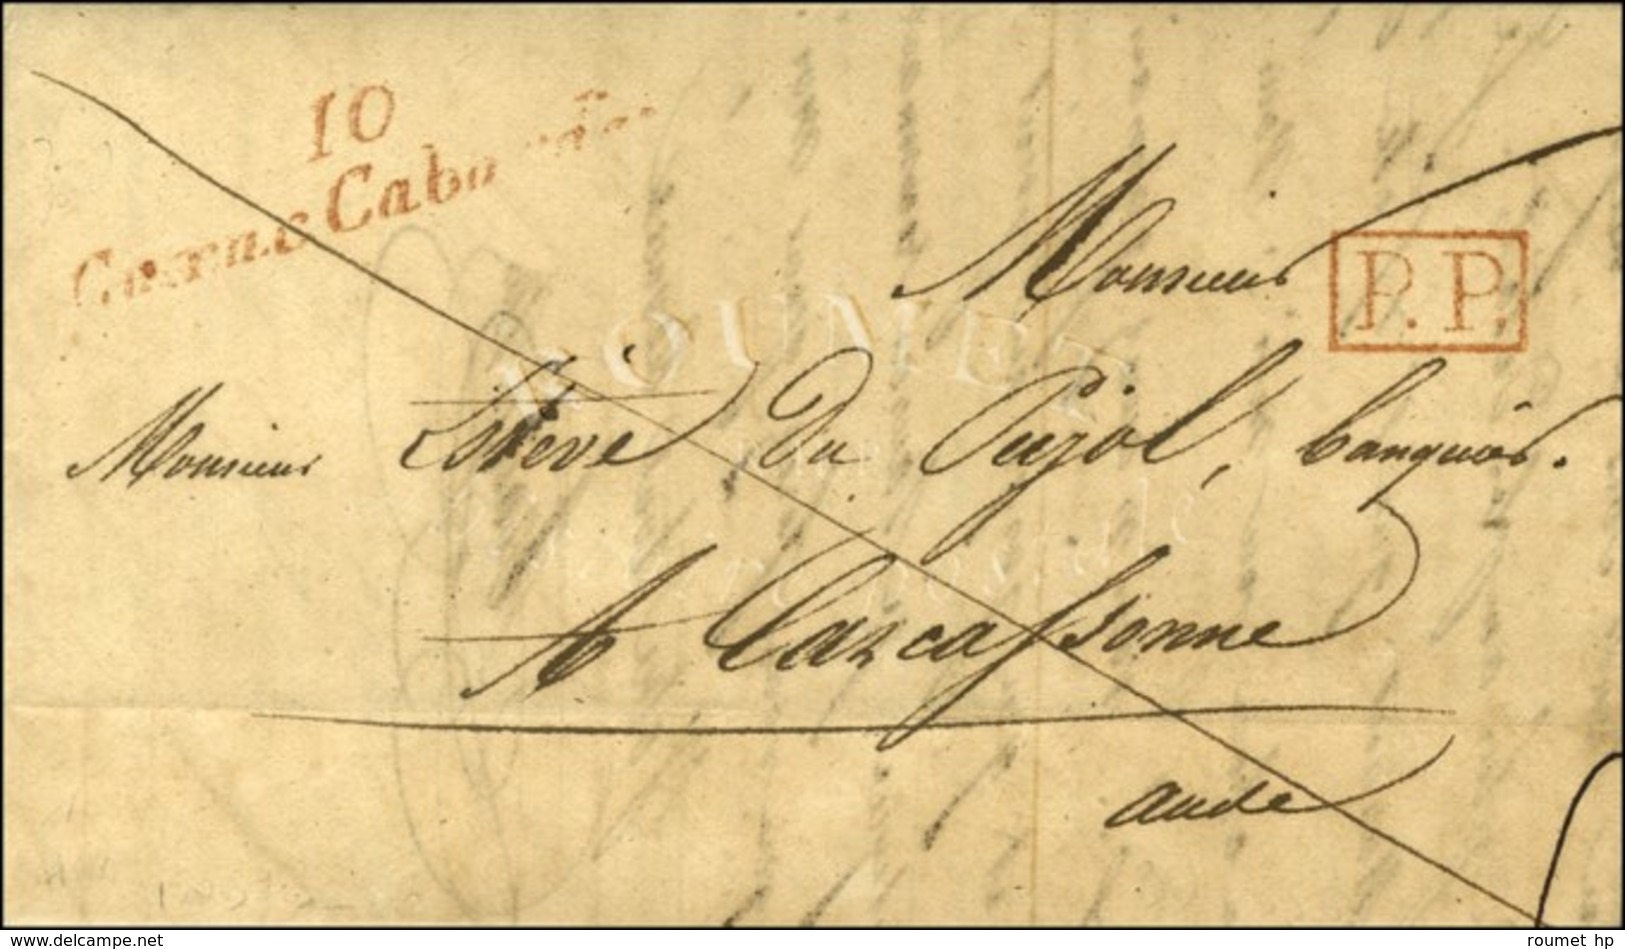 10
Cuxac Cabardès
Monsieur
P.P.
ROUMET
Monsieur Estève du Pujol, banquier.
A Carcassonne
aude
www.delcampe.net
roumet hp